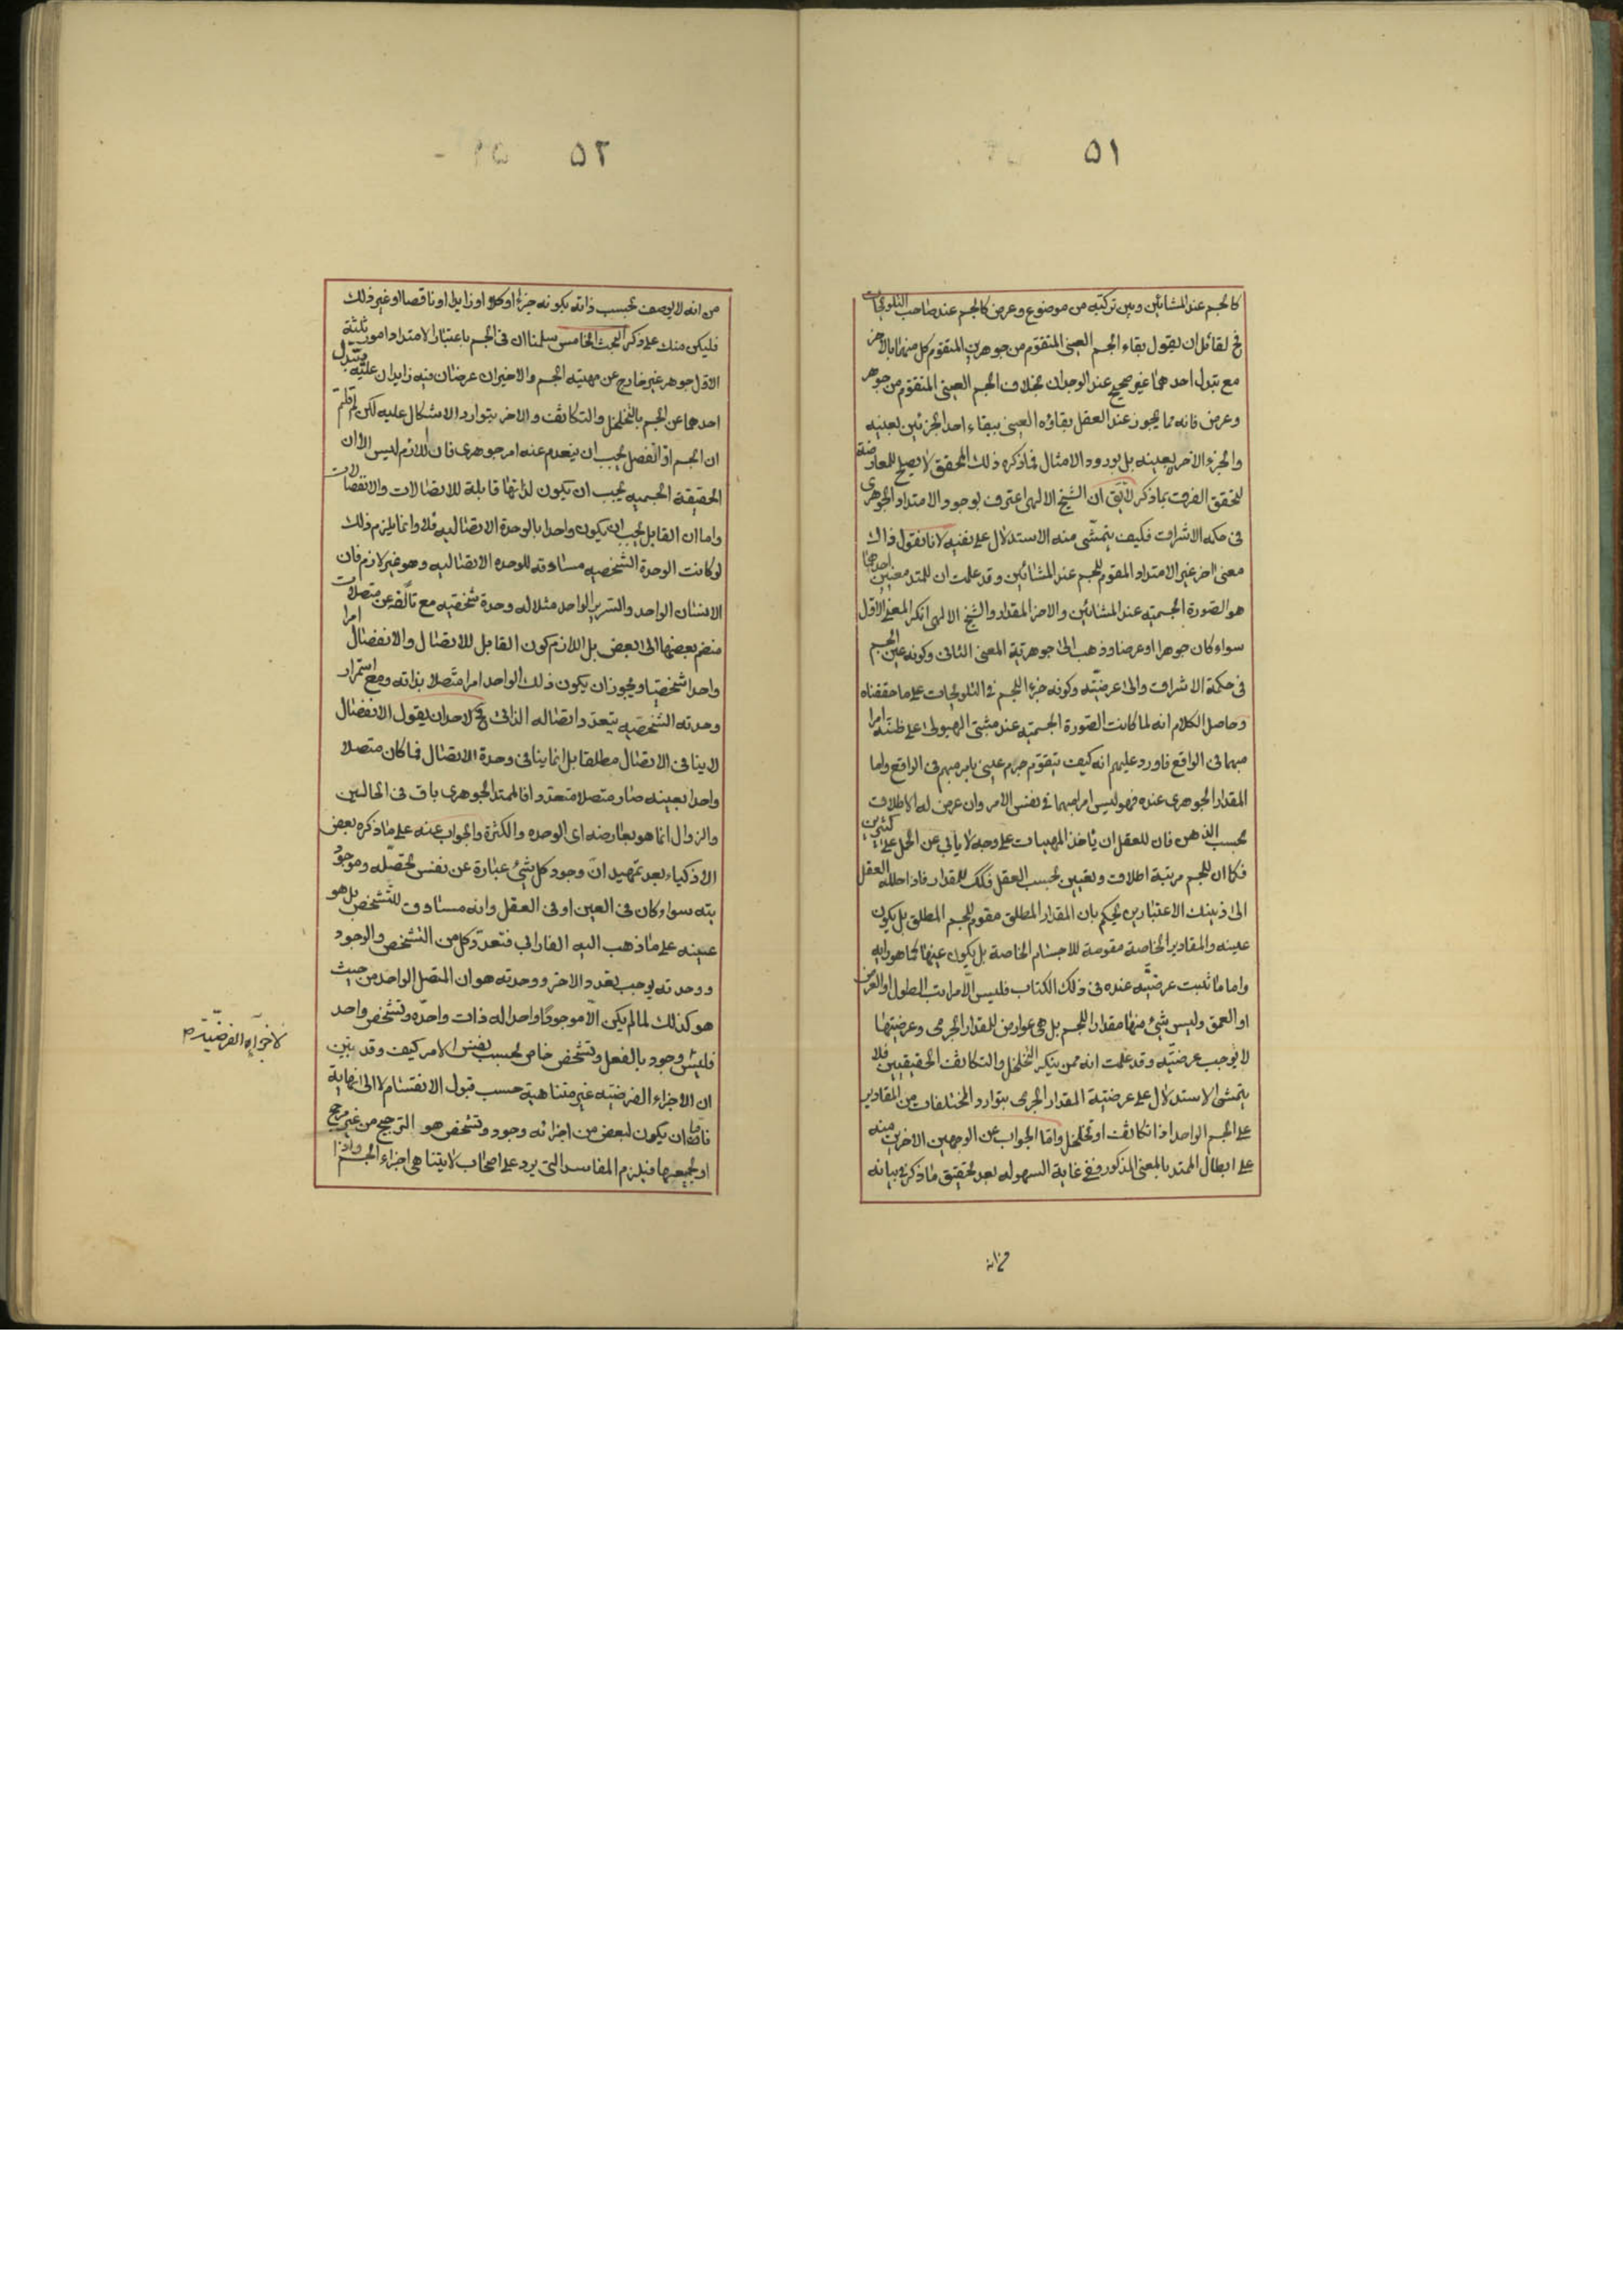 ٥١
كالجسم عند المشائين وبين تركبه من موضوع وعرض كالجسم عند صاحب التلويحات
فح لقائل ان يقول بقاء الجسم العينى المتقوم من جوهرين المتقوم كل منهما بالآخر
مع تبدل احدهما غير صحيح عند الوجدان بخلاف الجسم العينى المتقوم من جوهر
وعرض فانه مما يجوز عند العقل بقاؤه العينى ببقاء احد الجزئين بعينه
والجزء الآخر لا بعينه بل بورود الامثال فما ذكره ذلك المحقق لا يصلح للمعارضة
لتحقق الفرق بما ذكر لا يق ان الشيخ الالهى اعترف بوجود الامتداد الجوهرى
فى حكمه الاشراق فكيف يتمشى منه الاستدلال على نفيه لانا نقول ذاك
معنى اخر غير الامتداد المقوم للجسم عند المشائين وقد علمت ان للممتد معنيين احدهما
هو الصورة الجسمية عند المشائين والاخر المقدار والشيخ الالهى انكر المعنى الاول
سواء كان جوهرا او عرضا وذهب الى جوهرية المعنى الثانى وكونه عين الجسم
فى حكمة الاشراق والى عرضيته وكونه جزء للجسم فى التلويحات على ما حققناه
وحاصل الكلام انه لما كانت الصورة الجسميه عند مثبتى الهيولى على ظنه امرا
مبهما فى الواقع فاورد عليهم انه كيف يتقوم جرم عينى بامر مبهم فى الواقع واما
المقدار الجوهرى عنده فهو ليس امرا مبهما فى نفس الامر وان عرض له الاطلاق
بحسب الذهن فان للعقل ان ياخذ المهيات على وجه لا يأبى عن الحمل على كثيرين
فكما ان للجسم مرتبة اطلاق وتعيين بحسب العقل فكك للمقدار فاذا حلله العقل
الى ذينك الاعتبارين يحكم بان المقدار المطلق مقوم للجسم المطلق بل يكون
عينه والمقادير الخاصة مقومة للاجسام الخاصة بل يكون عينها كما هو رايه
واما ما ثبت عرضيته عنده فى ذلك الكتاب فليس الا مراتب الطول او العرض
او العمق وليس شئ منها مقدار للجسم بل هى عوارض للمقدار الجرمى وعرضيتها
لا يوجب عرضيته وقد علمت انه ممن ينكر التخلخل والتكاثف الحقيقيين فلا
يتمشى الاستدلال على عرضية المقدار الجرمى بتوارد المختلفات من المقادير
على الجسم الواحد اذا تكاثف او تخلخل واما الجواب عن الوجهين الاخرين منه
على ابطال الممتد بالمعنى المذكور ففى غاية السهوله بعد تحقيق ما ذكر فى بيانه
٥٢
من انه لا يوصف بحسب ذاته بكونه جزءا او كلا او زايدا او ناقصا او غير ذلك
فليكن منك على ذكر البحث الخامس سلمنا ان فى الجسم باعتبار الامتداد امور ثلثة
الاول جوهر غير خارج عن مهيته الجسم والاخيران عرضان فيه زايدان عليه يتبدل
احدهما عن الجسم بالتخلخل والتكاثف والاخر بتوارد الاشكال عليه لكن لم قلتم
ان الجسم اذا انفصل يجب ان ينعدم عنه امر جوهرى فان اللازم ليس الا ان
الحقيقة الجسميه يجب ان يكون لذاتها قابلة للاتصالات والانفصالات
واما ان القابل يجب ان يكون واحدا بالوحدة الاتصاليه فلا وانما يلزم ذلك
لو كانت الوحدة الشخصيه مساوقه للوحده الاتصاليه وهو غير لازم فان
الانسان الواحد والسرير الواحد مثلا له وحدة شخصيه مع تألفه عن متصلات
منضم بعضها الى البعض بل اللازم كون القابل للاتصال والانفصال امرا
واحدا شخصيا ويجوز ان يكون ذلك الواحد امرا متصلا بذاته ومع استمرار
وحدته الشخصيه يتعدد اتصاله الذاتى فح لاحد ان يقول الانفصال
لا ينافى الاتصال مطلقا بل انما ينافى وحدة الاتصال فما كان متصلا
واحدا بعينه صار متصلا متعددا فالممتد الجوهرى باق فى الحالين
والزوال انما هو بعارضه اى الوحده والكثرة والجواب عنه على ما ذكره بعض
الاذكياء بعد تمهيد ان وجود كل شئ عبارة عن نفس تحصله وموجوديته
سواء كان فى العين او فى العقل وانه مساوق للتشخص بل هو
عينه على ما ذهب اليه الفارابى فتعدد كل من التشخص والوجود
ووحدته يوجب تعدد الاخر ووحدته هو ان المتصل الواحد من حيث
هو كذلك لما لم يكن الا موجودا واحدا له ذات واحده وتشخص واحد
فليس وجود بالفعل وتشخص خاص بحسب نفس الامر كيف وقد تبين
ان الاجزاء الفرضيه غير متناهية حسب قبول الانقسام لا الى نهاية
فاما ان يكون لبعض من اجزائه وجود وتشخص هو الترجيح من غير مرجح
او لجميعها فيلزم المفاسد التى يرد على اصحاب لا يتناهى اجزاء الجسم واذا
لاجزائه الفرضيّة